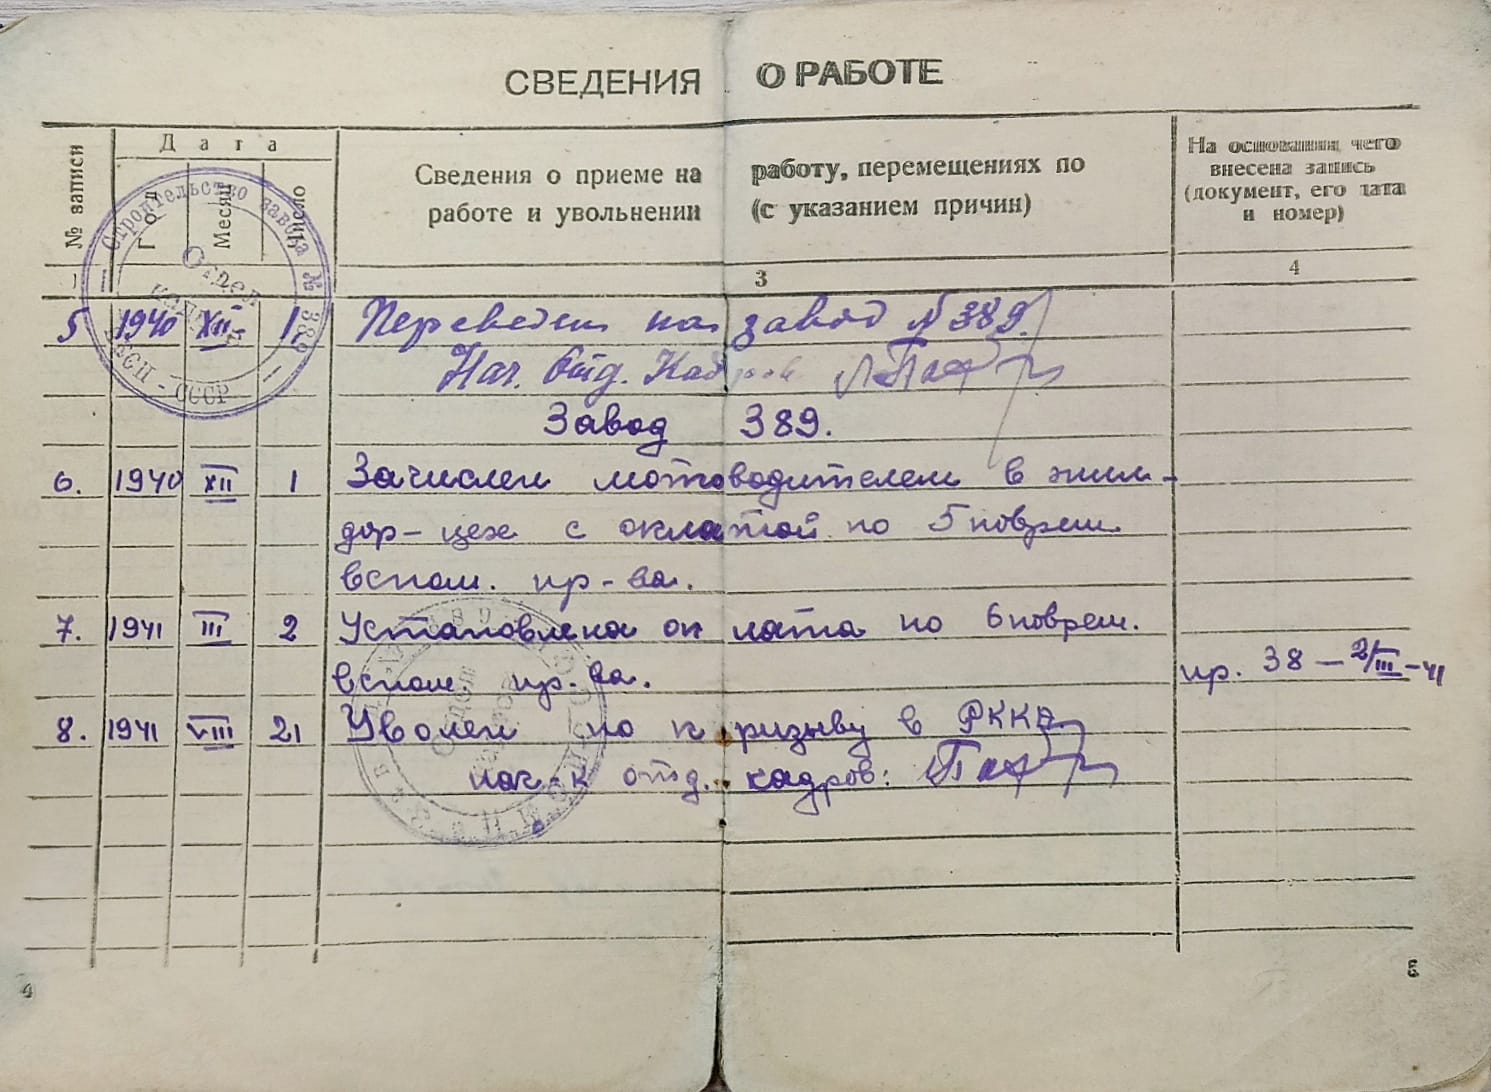 СВЕДЕНИЯ О РАБОТЕ
№ записи
Дата
Год
Месяц
Число
Сведения о приеме на работу, перемещениях по
работе и увольнении (с указанием причин)
На основании чего
внесена запись
(документ, его дата
и номер)
3
4
5 1940 XII 1 Переведен на завод №389.
Нач. Отд. Кадров
Завод 389.
6. 1940 XII 1 Зачислен мотоводителем в жил-
дор-цех с оплатой по 5 повреш.
вспом. пр-ва.
7. 1941 III 2 Установлена оплата по 6 повреш.
вспом пр-ва. пр. 38 — 2/III-41
8. 1941 VIII 21 Уволен по призыву в РККА
нач-к отд. кадров:
Строительство завода № 389
Отдел
кадров
СССР
Отдел